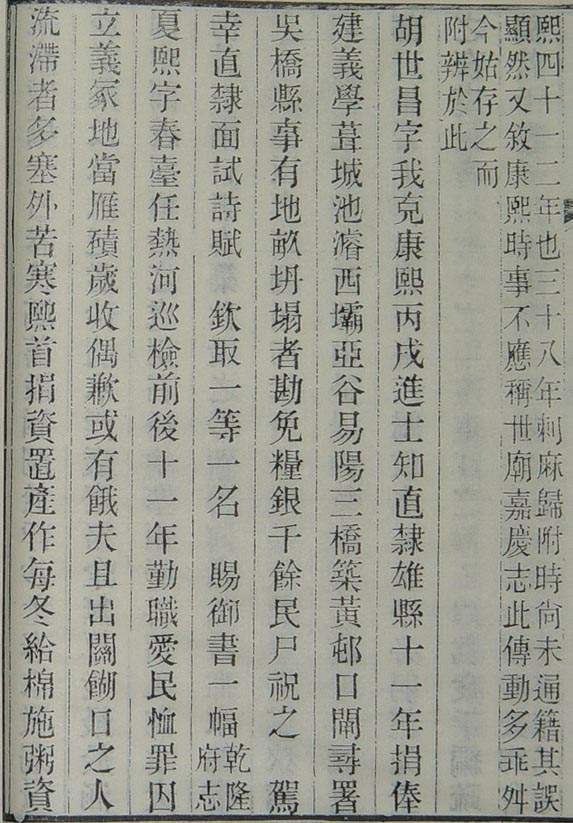 熙四十一二年也三十八年剌麻歸附時尚未遍籍其誤
顯然又敘康熙時事不應稱世廟嘉慶志此傳動多乖舛
今姑存之而
附辨於此
胡世昌字我克康熙丙戌進士知直隸雄縣十一年捐俸
建義學葺城池濬西壩亞谷易陽三橋築黃邨口閘尋署
吳橋縣事有地畝坍塌者勘免糧銀千餘民尸祝之 駕
幸直隸面試詩賦 欽取一等一名 賜御書一幅 乾隆府志
夏熙字春臺任熱河巡檢前後十一年勤職愛民恤罪囚
立義冢地當雁磧歲收偶歉或有餓夫且出關餬口之人
流滯者多塞外苦寒熙首捐資置產作每冬給棉施粥資